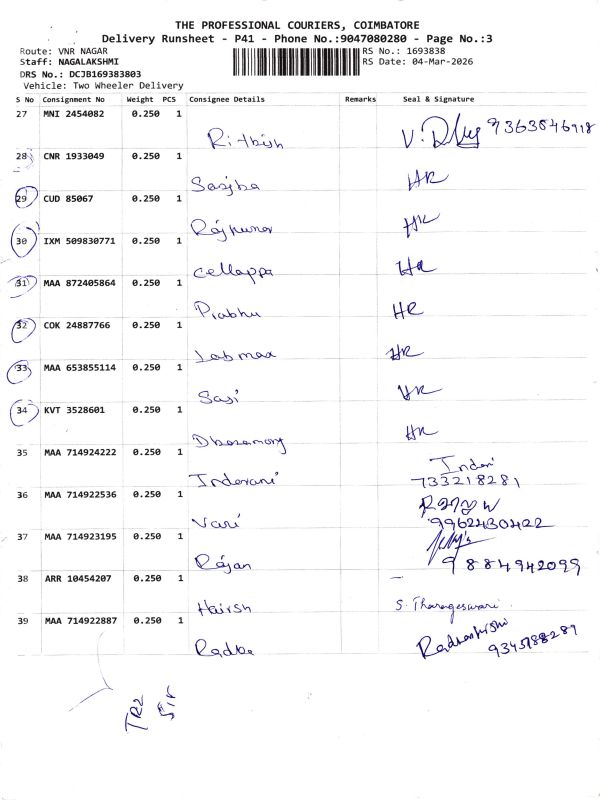 THE PROFESSIONAL COURIERS, COIMBATORE
Delivery Runsheet - P41 - Phone No.:9047080280 - Page No.:3
Route: VNR NAGAR
RS No.: 1693838
Staff: NAGALAKSHMI
RS Date: 04-Mar-2026
DRS No.: DCJB169383803
Vehicle: Two Wheeler Delivery
S No Consignment No Weight PCS Consignee Details Remarks Seal & Signature
27 MNI 2454082 0.250 1
Rithish 9363846918
28 CNR 1933049 0.250 1
HR
29 CUD 85067 0.250 1
Rajkumar HR
30 IXM 509830771 0.250 1
Cellappa HR
31 MAA 872405864 0.250 1
Prabhu HR
32 COK 24887766 0.250 1
HR
33 MAA 653855114 0.250 1
Sasi HR
34 KVT 3528601 0.250 1
HR
35 MAA 714924222 0.250 1
Inderani Inderi
733218281
36 MAA 714922536 0.250 1
Vari
9962430422
37 MAA 714923195 0.250 1
Rajan
9884942099
38 ARR 10454207 0.250 1
Hairsh S. Tharageswari
39 MAA 714922887 0.250 1
Radha
TR2
Sir